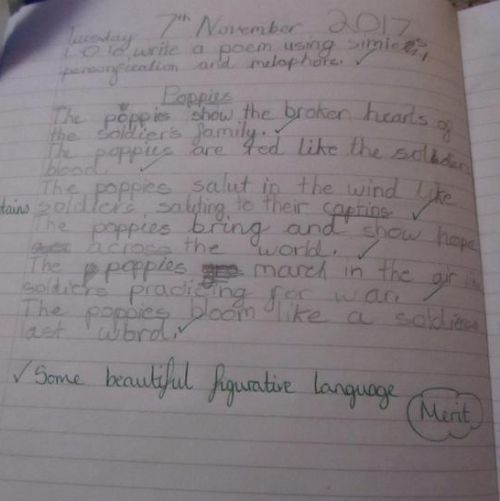 Tuesday 7th November 2017
L.O to write a poem using similes,
personification and metaphore. ✓
Poppies
The poppies show the broken hearts of
the soldier's family. ✓
The poppies are red like the soldiers
blood. ✓
The poppies salut in the wind like
tains soldiers, saluting to their captins ✓
The poppies bring and show hope
across the world. ✓
The poppies march in the air
soldiers practicing for war. ✓
The poppies bloom like a soldiers
last word. ✓
✓ Some beautiful figurative language
Merit